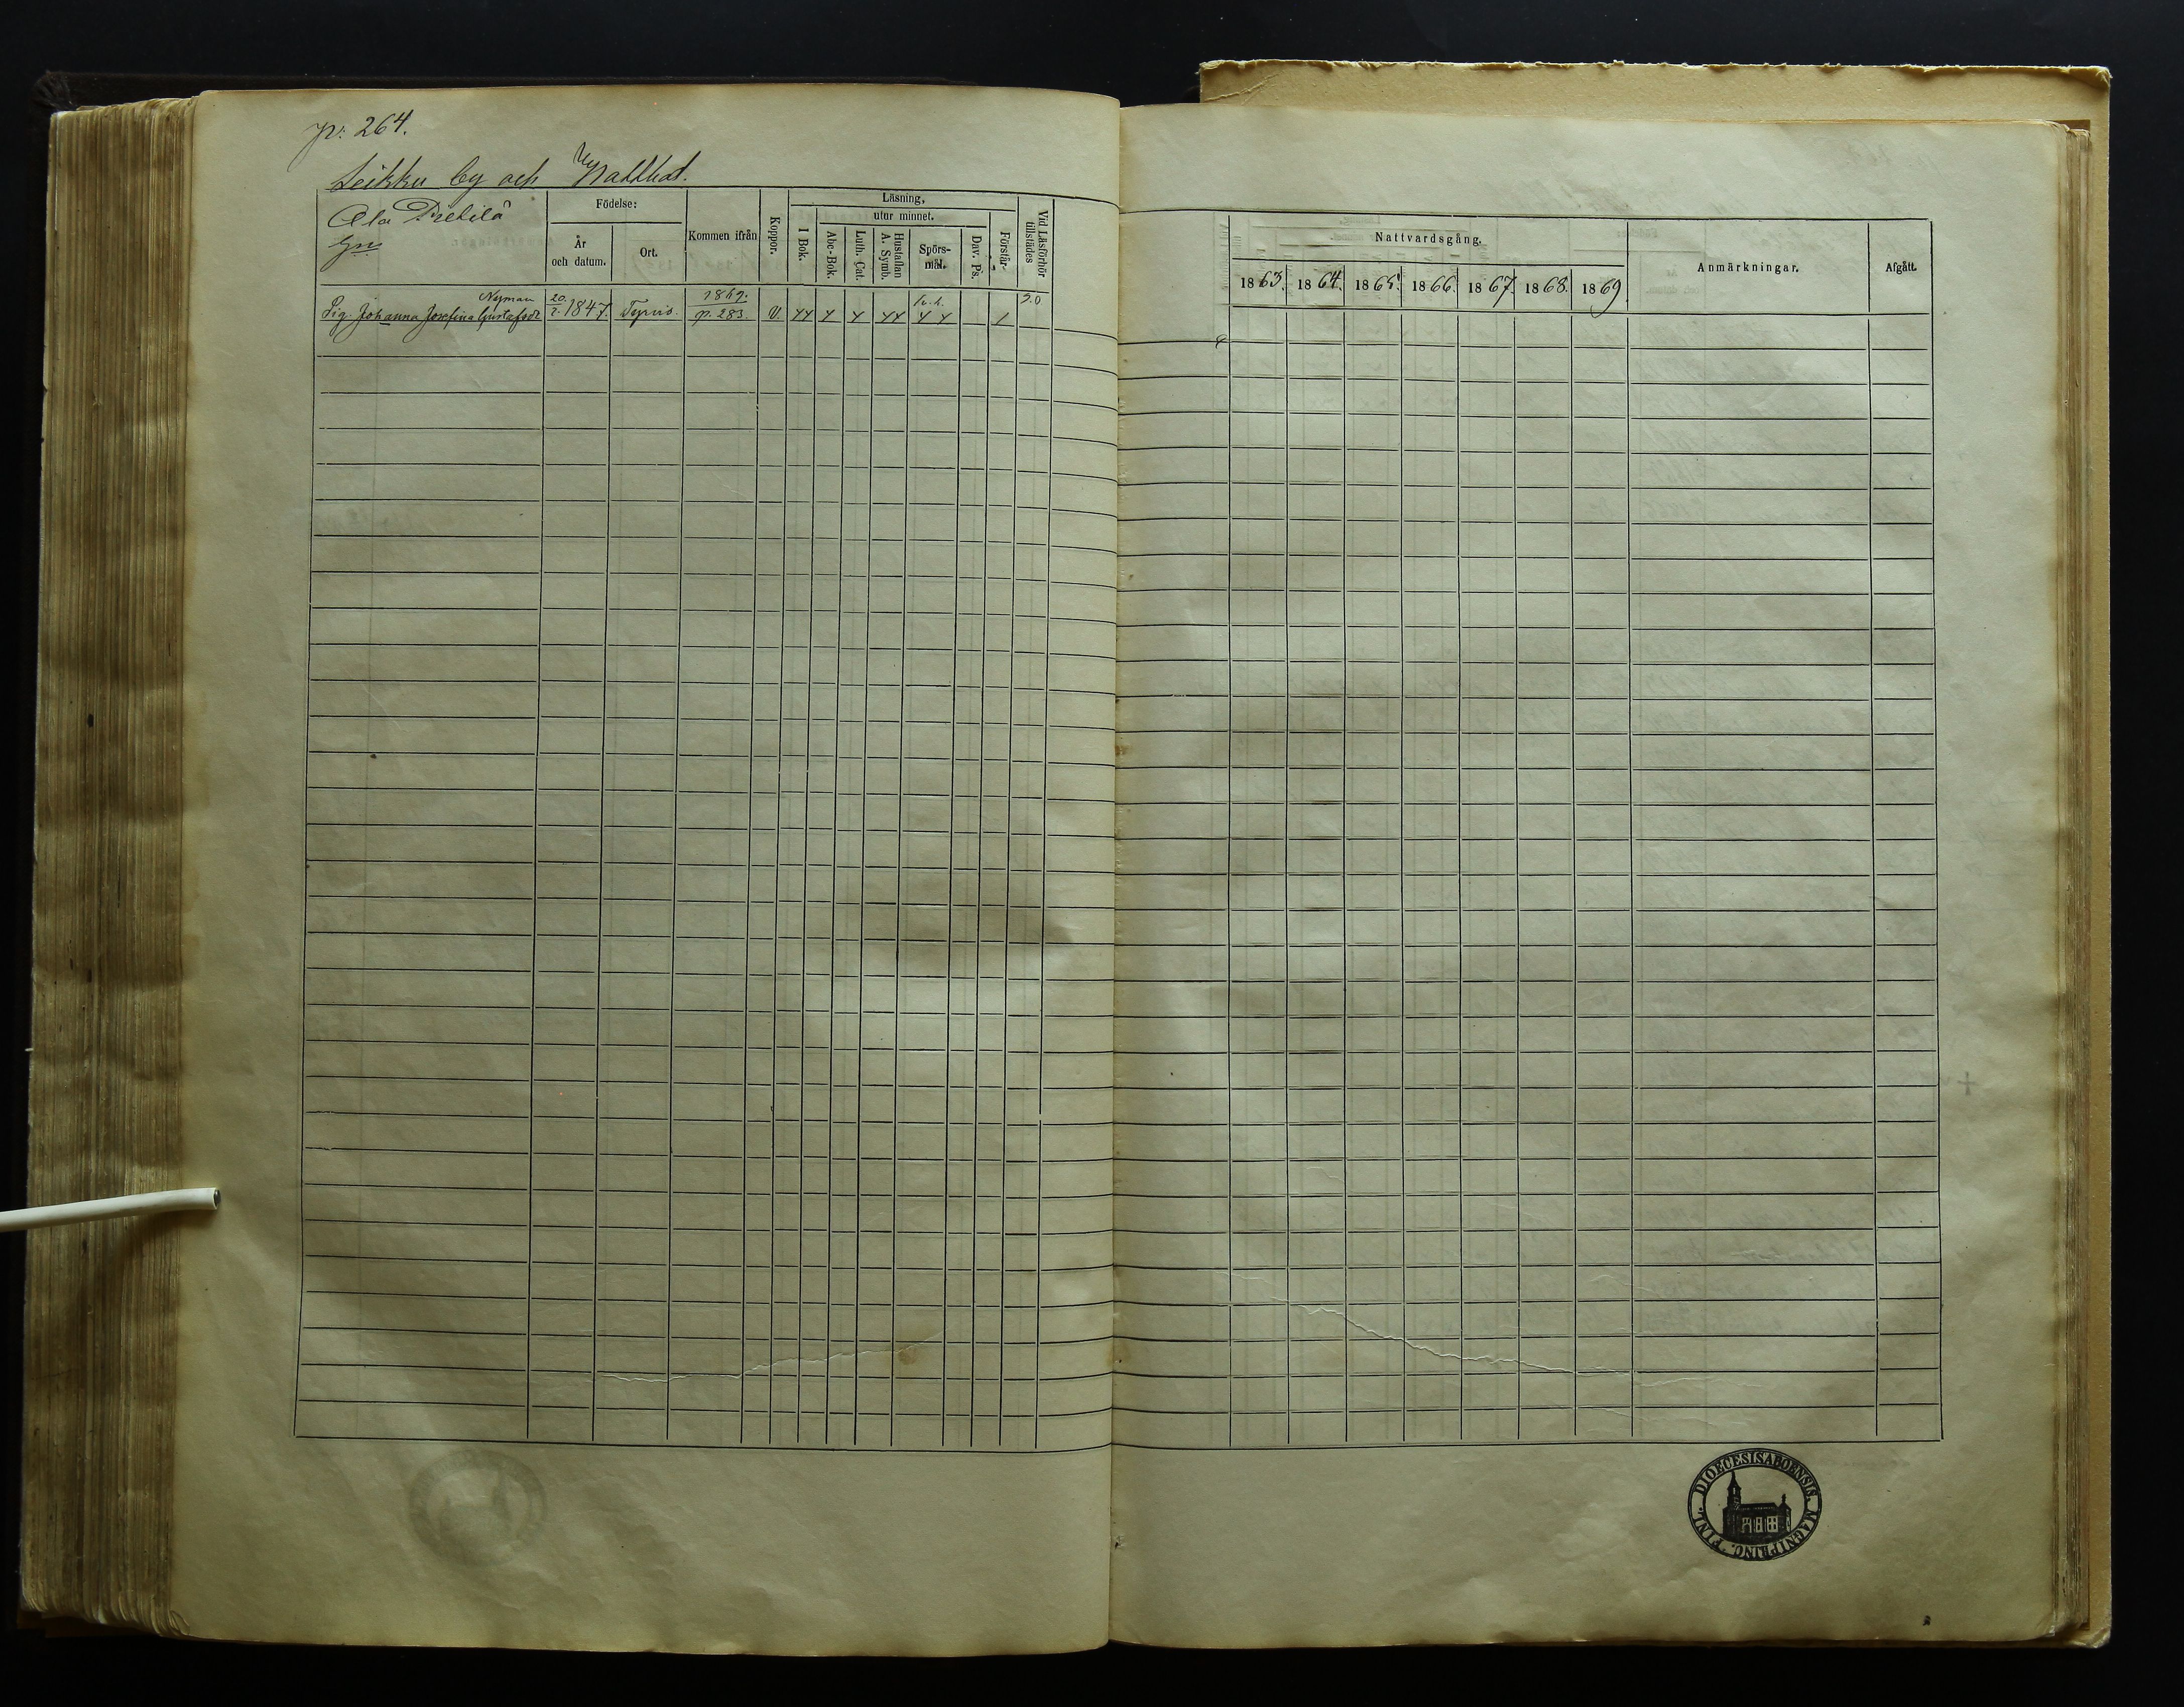 p: 264.
Leikku by och
Ala Pietilä
Gn
Födelse:
År
och datum.
Ort.
Kommen ifrån
Koppor.
Läsning,
I Bok.
utur minnet.
Abc-Bok.
Luth. Cat.
Hustaflan
A. Symb.
Spörs-
mål.
Dav. Ps.
Förstår
Vid Läsförhör
tillstädes
Nyman
Pig. Johanna Josefina Gustafsdr
20/2. 1847. Tyrvis.
1869.
p. 283.
V.
30
Nattvardsgång.
1863. 1864. 1865. 1866. 1867. 1868. 1869.
Anmärkningar.
Afgått.
DIOECESIS ABOENSIS. MAGNI PRINC. FINL.